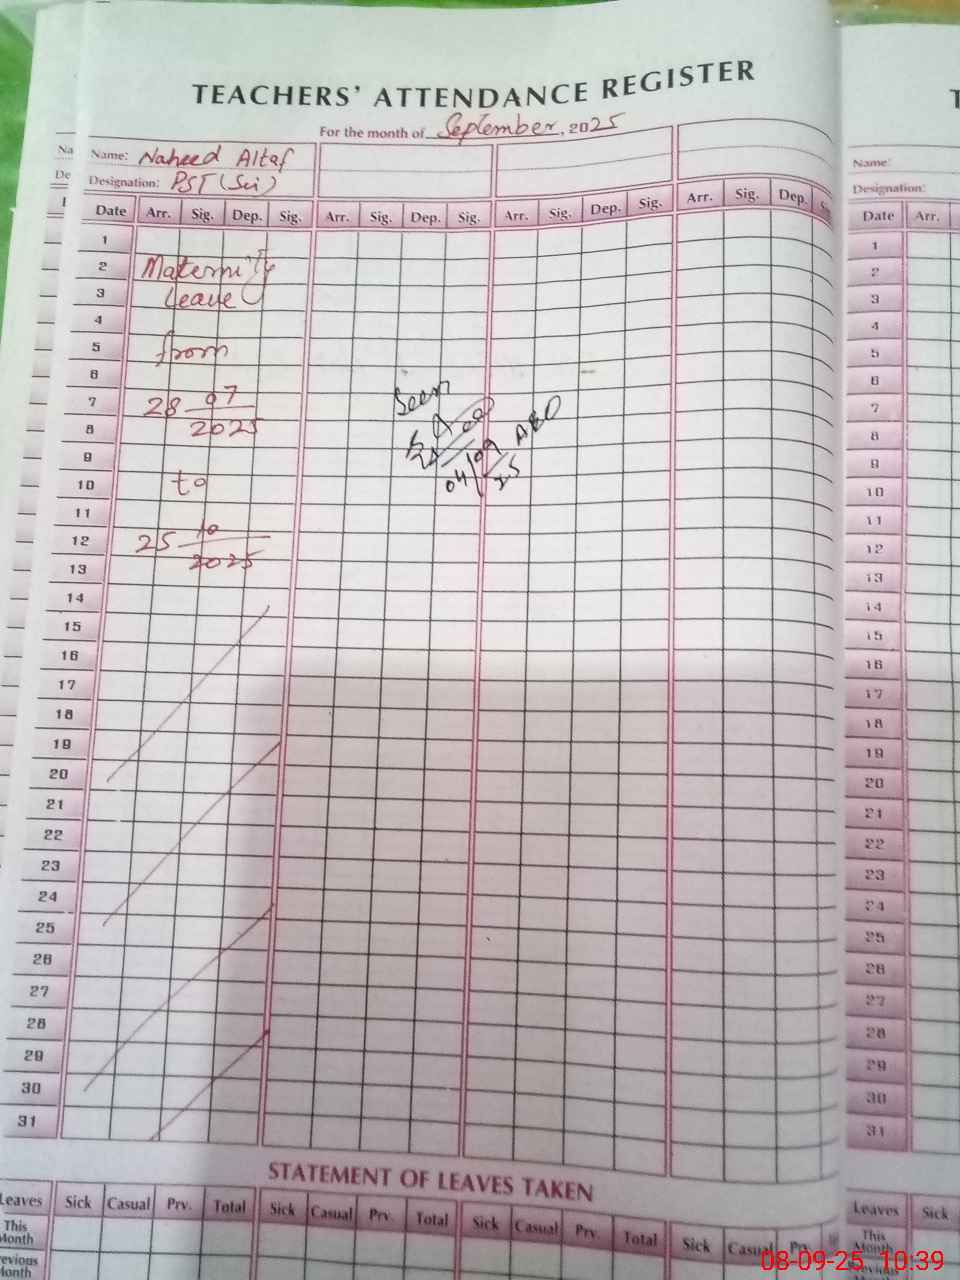 TEACHERS' ATTENDANCE REGISTER
For the month of September, 2025
Name: Naheed Altaf
Designation: PST (Sci)
Date Arr. Sig. Dep. Sig. Arr. Sig. Dep. Sig. Arr. Sig. Dep. Sig. Arr. Sig. Dep.
1
2 Maternity
3 Leave
4
5 from
6
7 28 07
8 2025
9
10 to
11
12 25 10
13 2025
14
15
16
17
18
19
20
21
22
23
24
25
26
27
28
29
30
31
Seen
AEO
04/09
25
STATEMENT OF LEAVES TAKEN
Leaves Sick Casual Prv. Total Sick Casual Prv. Total Sick Casual Prv. Total Sick Casual Prv.
This
Month
Name:
Designation:
Date Arr.
1
2
3
4
5
6
7
8
9
10
11
12
13
14
15
16
17
18
19
20
21
22
23
24
25
26
27
28
29
30
31
Leaves Sick
This
Month
08-09-25 10:39